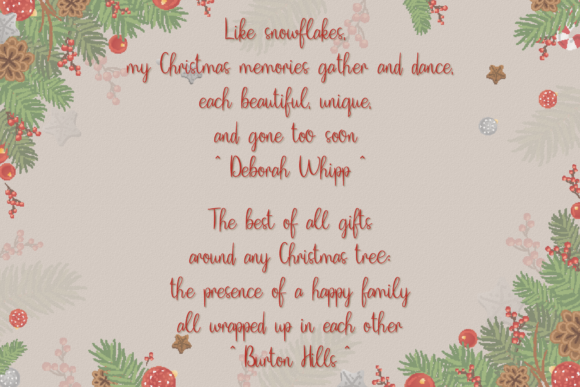 Like snowflakes,
my Christmas memories gather and dance,
each beautiful, unique,
and gone too soon
~ Deborah Whipp ~
The best of all gifts
around any Christmas tree:
the presence of a happy family
all wrapped up in each other
~ Burton Hills ~